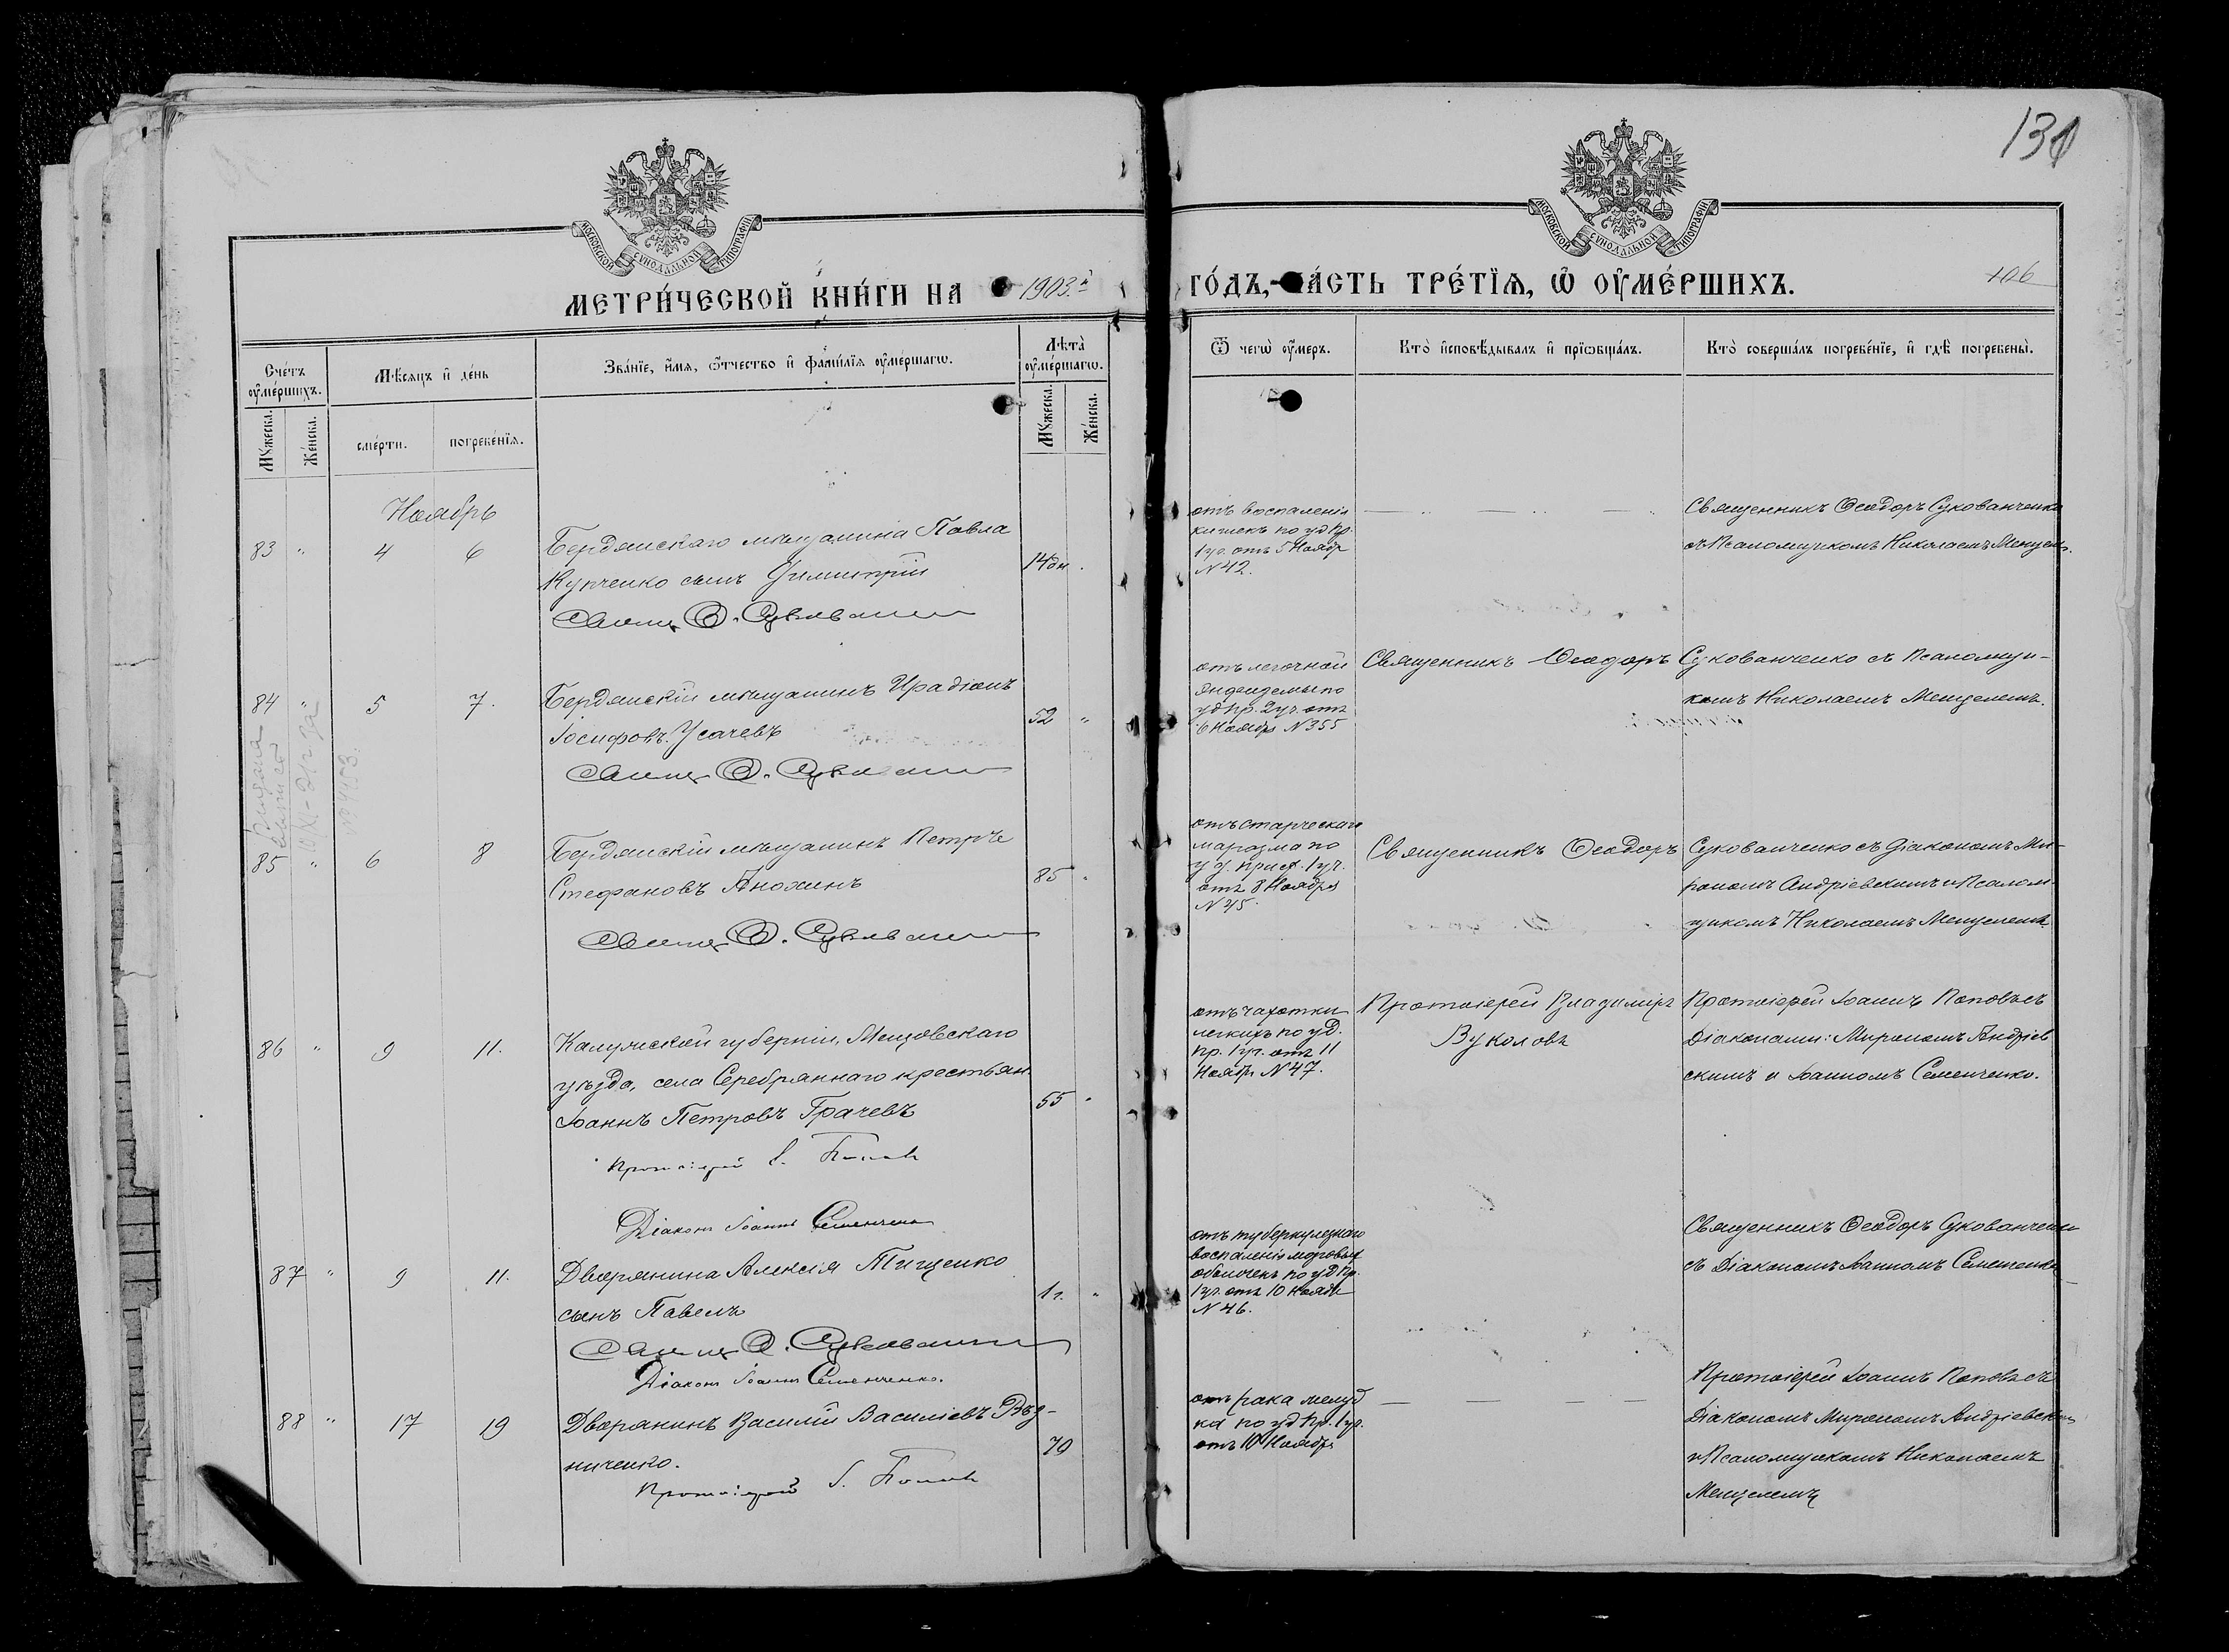 131
106
МОСКОВСКОЙ СѴНОДАЛЬНОЙ ТИПОГРАФІИ
МОСКОВСКОЙ СѴНОДАЛЬНОЙ ТИПОГРАФІИ
МЕТРИ́ЧЕСКОЙ КНИ́ГИ НА 1903.й
ГО́ДЪ, ЧА́СТЬ ТРЕ́ТЇѦ, Ѡ ОУ҆МЕ́РШИХЪ.
Сче́тъ оу҆ме́ршихъ.
Мꙋ́жеска.
Же́нска.
Мѣ́сяцъ и҆ де́нь
сме́рти.
погребе́нїѧ.
Зва́нїе, и҆́мѧ, ѻ҆́тчество и҆ фамилїѧ оу҆ме́ршагѡ.
Лѣта̀ оу҆ме́ршагѡ.
Мꙋ́жеска.
Же́нска.
Ѿ чегѡ̀ оу҆́меръ.
Кто̀ и҆сповѣ́дывалъ и҆ прїѡбща́лъ.
Кто̀ соверша́лъ погребе́нїе, и҆ гдѣ̀ погребены̀.
Ноябрь
83 " 4 6
Бердянскаго мѣщанина Павла
Купченко сынъ Димитрій
14 дн.
отъ воспаленія
кишекъ по уд пр.
1 уч. отъ 5 Ноября
N 42.
Священникъ Ѳеодоръ Сукованченко
съ Псаломщикомъ Николаемъ Менцелемъ.
84 " 5 7.
Бердянскій мѣщанинъ Иродіонъ
Іосифовъ Усачевъ
52 "
отъ легочной
по
уд пр. 2 уч. отъ
6 Ноября N 355
Священникъ Ѳеодоръ
Сукованченко съ Псаломщи-
комъ Николаемъ Менцелемъ.
85 " 6 8
Бердянскій мѣщанинъ Петръ
Стефановъ Анохинъ
85 "
отъ старческаго
маразма по
уд. прист. 1 уч.
отъ 8 Ноября
N 45.
Священникъ Ѳеодоръ
Сукованченко съ Діакономъ Ми-
рономъ Андріевскимъ и Псалом-
щикомъ Николаемъ Менцелемъ
86 " 9 11.
Калужской губерніи, Мещовскаго
уѣзда, села Серебряннаго крестьян.
Іоаннъ Петровъ Грачевъ
55 "
Протоіерей І. Поповъ
Діаконъ Іоаннъ Семенченко
отъ чахотки
легкихъ по уд.
пр. 1 уч. отъ 11
Ноября N 47.
Протоіерей Владиміръ
Вуколовъ
Протоіерей Іоаннъ Поповъ съ
Діаконами: Мирономъ Андріев
скимъ и Іоанномъ Семенченко.
87 " 9 11.
Дворянина Алексія Тищенко
сынъ Павелъ
1 г. "
Діаконъ Іоаннъ Семенченко.
отъ туберкулезнаго
воспаленія мозговыхъ
оболочекъ по уд пр.
1 уч. отъ 10 Ноября
N 46.
Священникъ Ѳеодоръ Сукованченко
съ Діакономъ Іоанномъ Семенченко
88 " 17 19
Дворянинъ Василій Василіевъ Рѣз-
ниченко.
70
Протоіерей І. Поповъ
отъ рака желуд
ка по уд пр. 1 уч.
отъ Ноября
Протоіерей Іоаннъ Поповъ съ
Діакономъ Мирономъ Андріевскимъ
и Псаломщикомъ Николаемъ
Менцелемъ